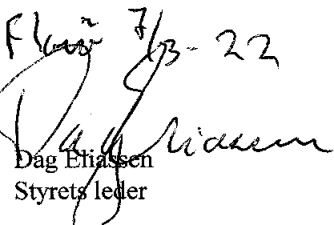 Florø 7/3-22
Dag Eliassen
Dag Eliassen
Styrets leder